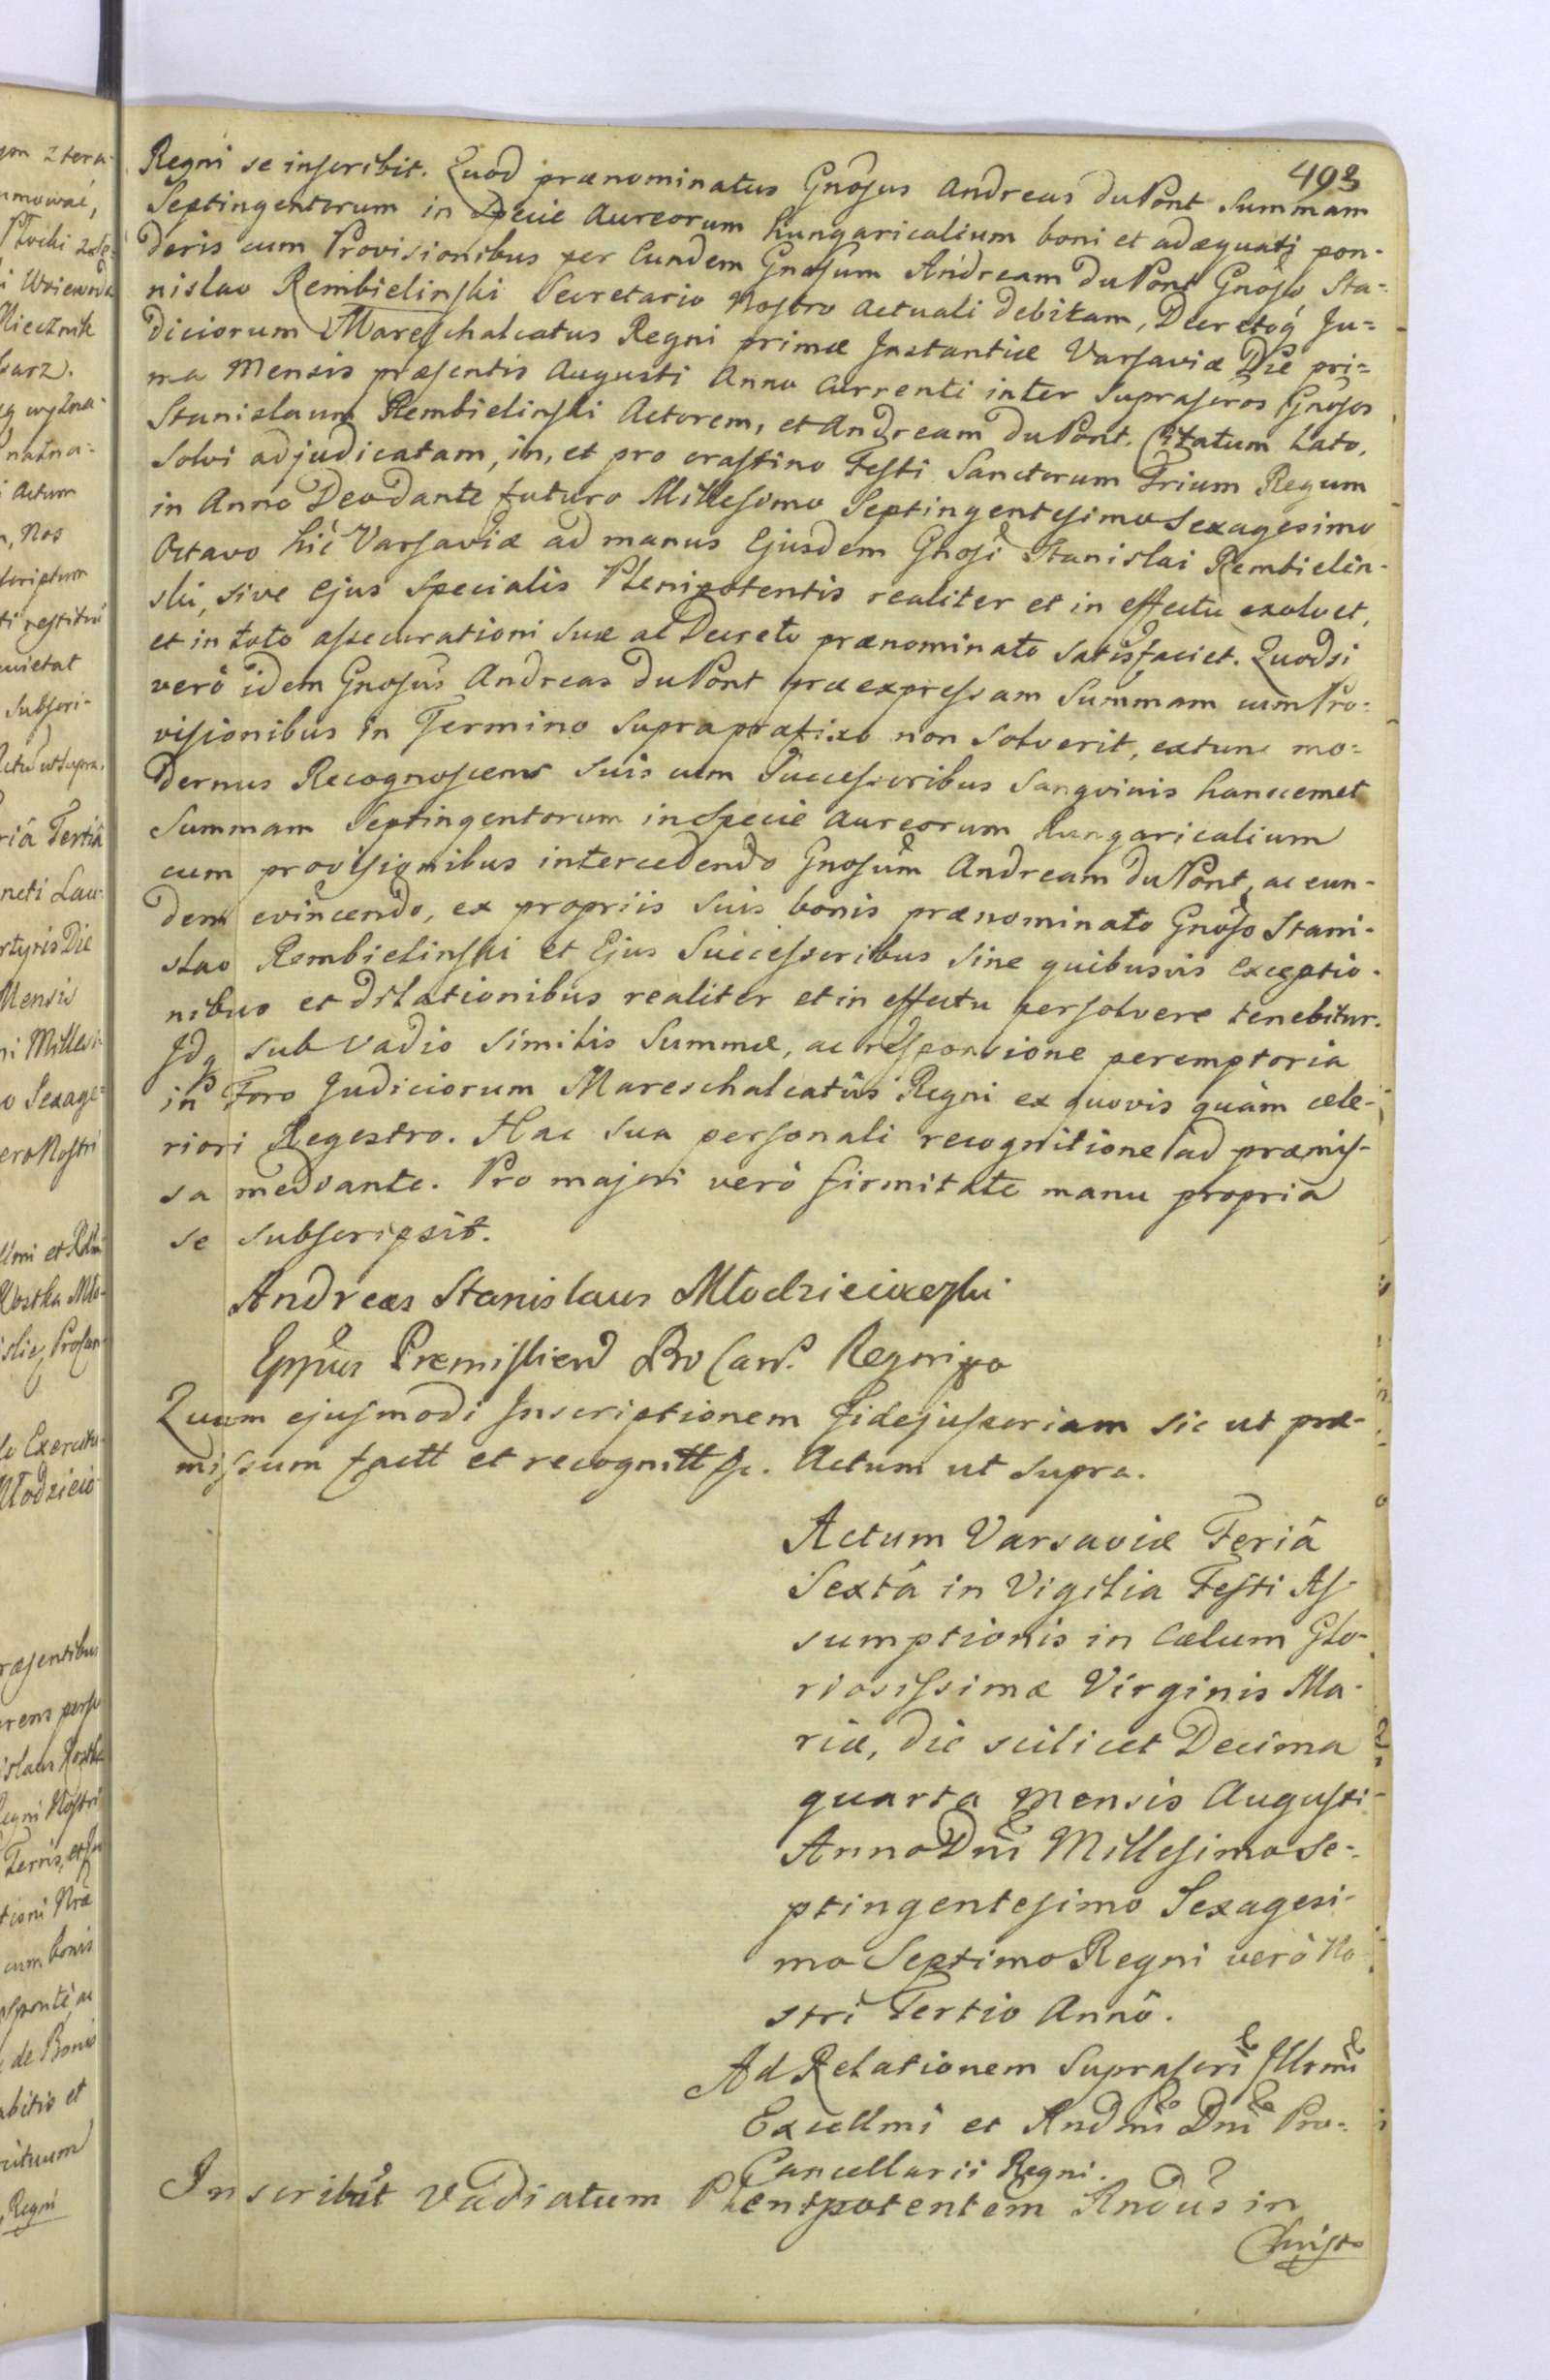 493
Regni se inscribit. Quod prænominatus Gnosus Andreas duPont Summam
Septingentorum in Specie Aureorum hungaricalium boni et adæquati pon-
deris cum Provisionibus per Eundem Gnosum Andream duPont Gnoso Sta-
nislao Rembielinski Secretario Nostro Actuali debitam, Decretoq Ju-
diciorum Mareschalcatus Regni primæ Instantiæ Varsaviæ Die pri-
ma Mensis præsentis Augusti Anno Currenti inter Suprascros Gnosos
Stanislaum Rembielinski Actorem, et Andream duPont. Citatum lato,
solvi adjudicatam, in, et pro crastino Festi Sanctorum Trium Regum
in Anno Deo Dante futuro Millesimo Septingentesimo Sexagesimo
Octavo hic Varsaviæ ad manus Ejusdem Gnosi Stanislai Rembielin-
ski, sive Ejus Specialis Plenipotentis realiter et in effectu exolvet,
et in toto assecurationi suæ ac Decreto prænominato satisfaciet. Quodsi
verò idem Gnosus Andreas duPont præexpressam Summam cum Pro-
visionibus in Termino supra præfixo non solverit, extunc mo-
dernus Recognoscens suis cum Successoribus Sangvinis hanccemet
Summam Septingentorum in Specie Aureorum hungaricalium
cum provisionibus intercedendo Gnosum Andream duPont, ac eun-
dem evincendo, ex propriis suis bonis prænominato Gnoso Stani-
slao Rembielinski et Ejus Successoribus sine quibusvis exceptio-
nibus et dilationibus realiter et in effectu persolvere tenebitur.
Idq sub vadio similis Summæ, ac responsione peremptoria
in Foro Judiciorum Mareschalcatûs Regni ex quovis quàm cele-
riori Regestro. Hac sua personali recognitione ad præmis-
sa mediante. Pro majori verò firmitate manu propria
se subscripsit.
Andreas Stanislaus Młodzieiowski
Eppus Præmisliens Pro Canc. Regni
Quam ejusmodi Inscriptionem fidejussoriam sic ut præ-
missum factt et recognitt &c. Actum ut supra.
Actum Varsaviæ Feriâ
Sextâ in Vigilia Festi As-
sumptionis in Cælum Glo-
riosissimæ Virginis Ma-
riæ, die scilicet Decima
quarta Mensis Augusti
Anno Dni Millesimo Se-
ptingentesimo Sexagesi-
mo Septimo Regni verò No
stri Tertio Annô.
Ad Relationem Suprascri Illrmi
Excellmi et Rndmi Dni Pro-
Cancellarii Regni.
Inscribit Vadiatum Plenipotentem Rndus in
Christo